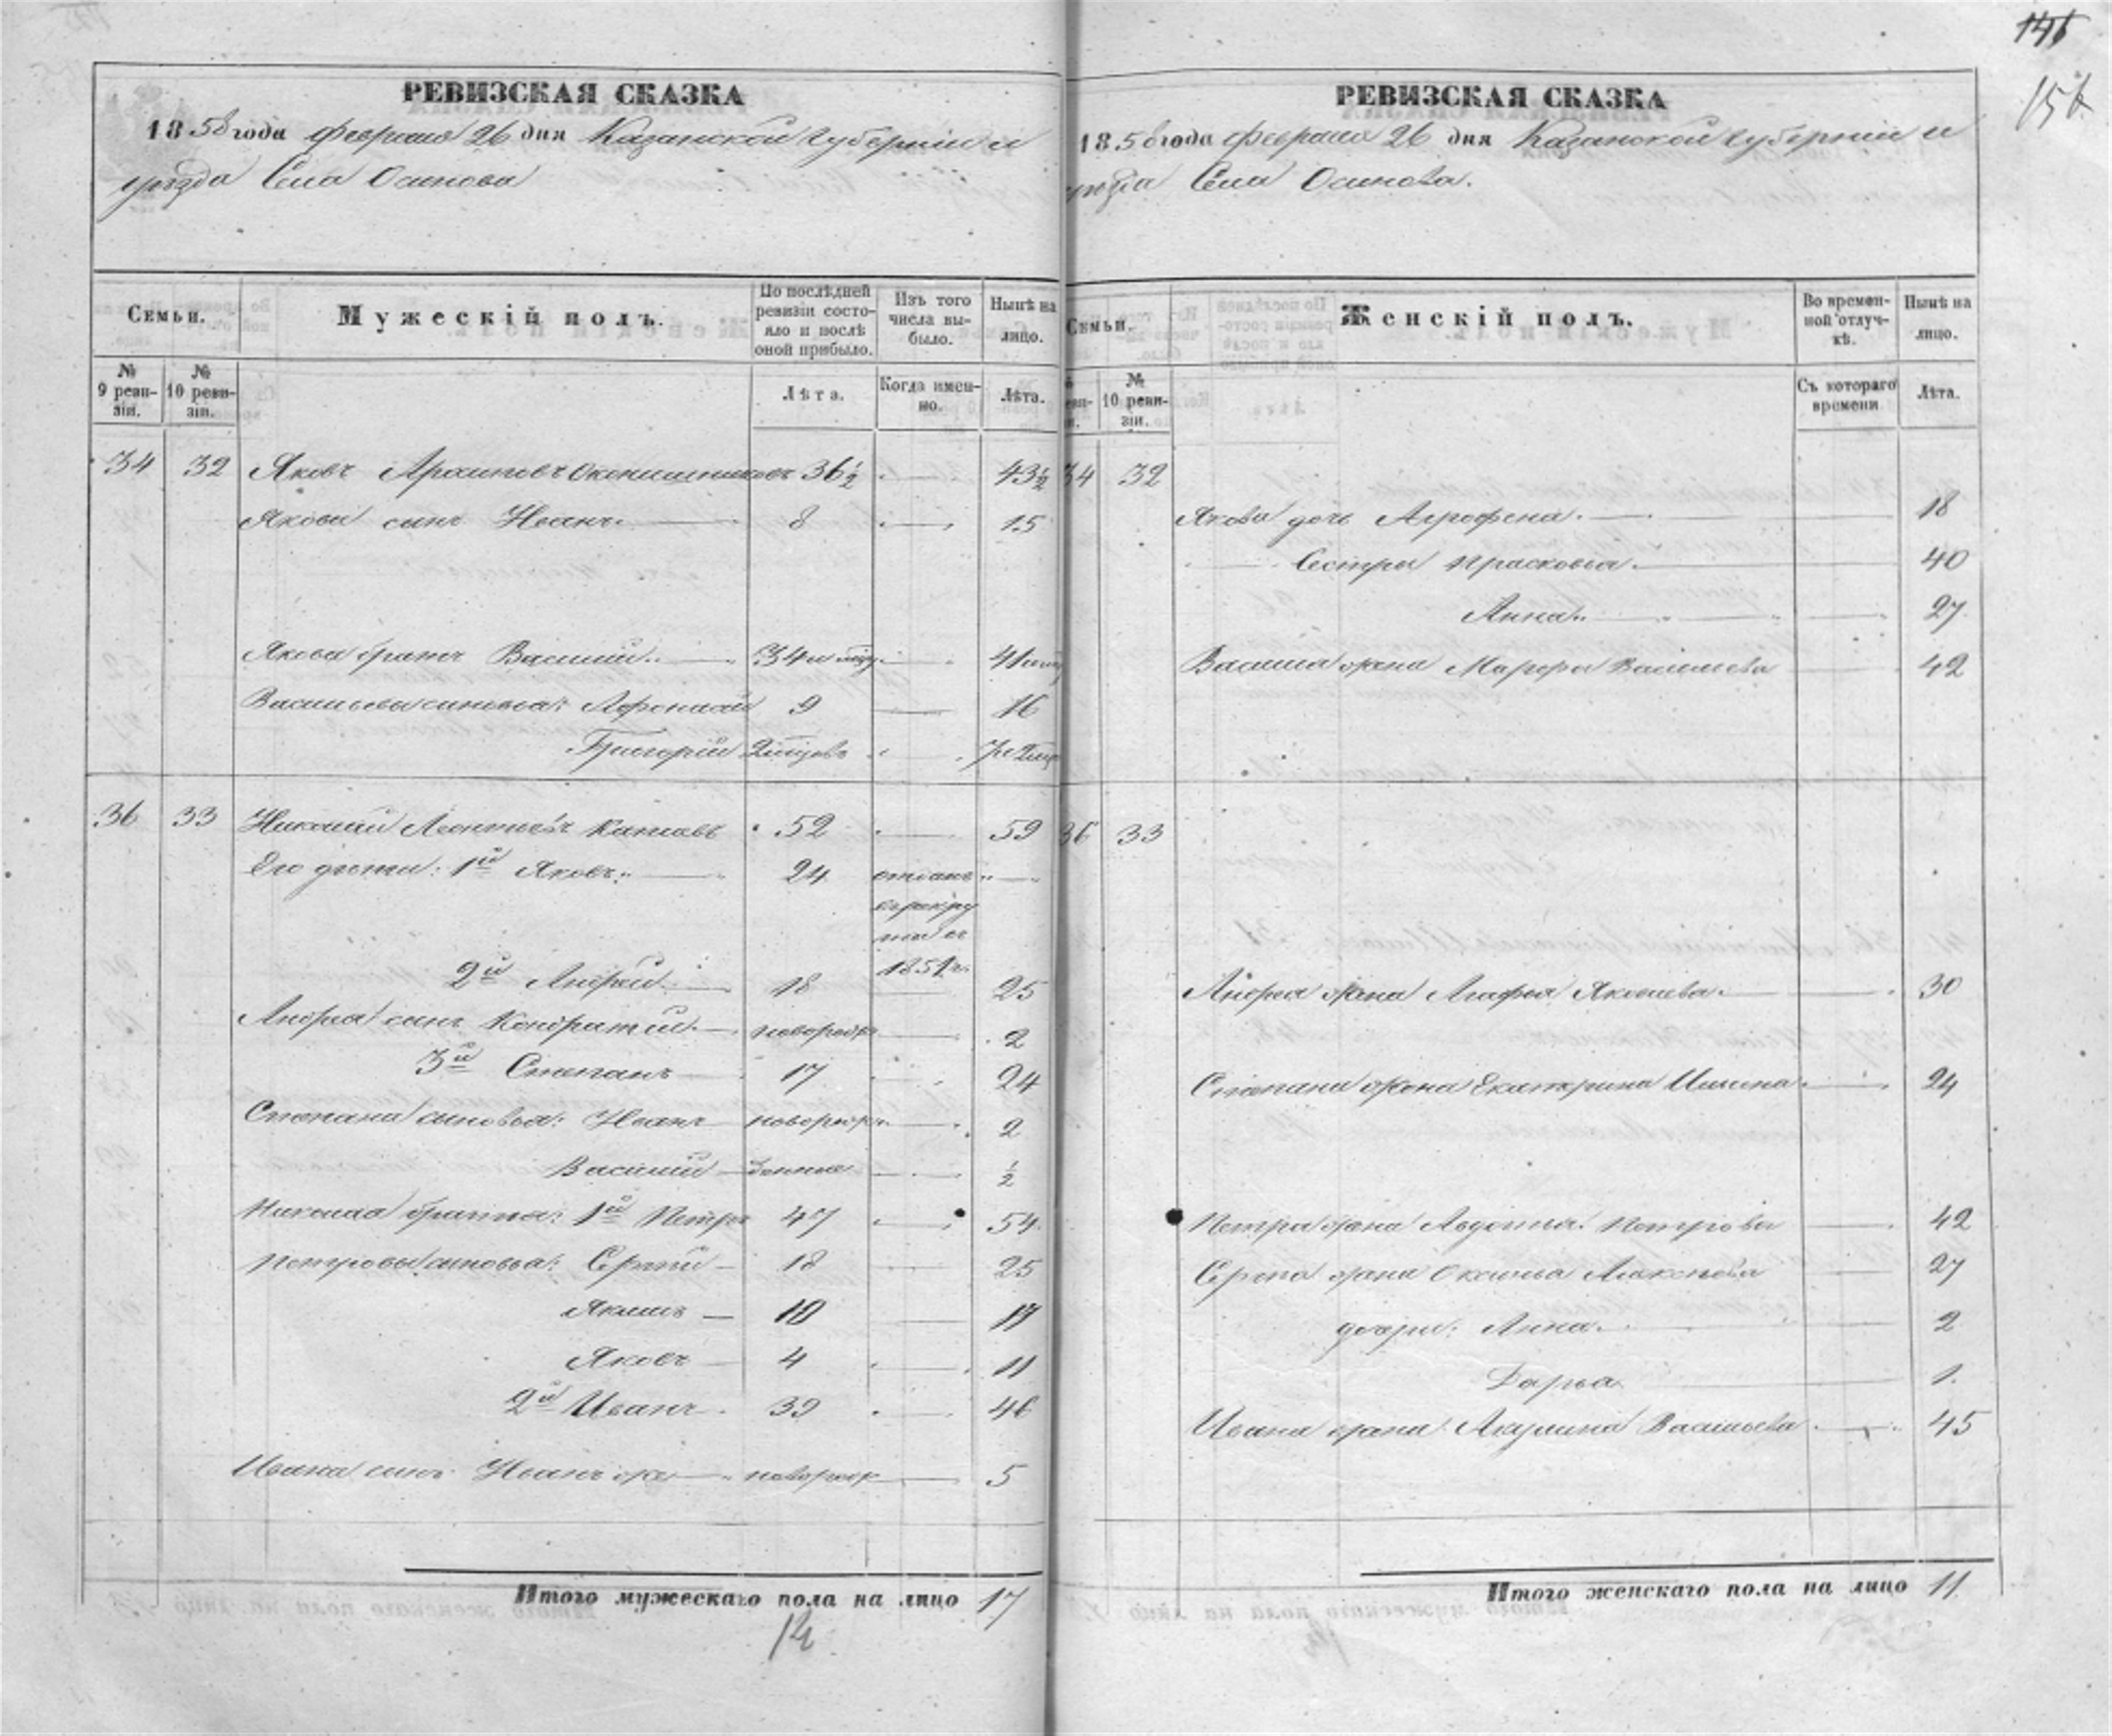 РЕВИЗСКАЯ СКАЗКА
1858 года Февраля 26 дня Казанской Губерніи и
уѣзда Села Осинова
Семьи.
Мужескій полъ.
По послѣдней ревизіи состояло и послѣ оной прибыло.
Изъ того числа выбыло.
Нынѣ на лицо.
№ 9 ревизіи.
№ 10 ревизіи.
Лѣта.
Когда именно.
Лѣта.
34 32 Яковъ 36½ — 43½
Якова сынъ Иванъ — 8 — 15
Якова братъ Василий — 34 и — 41
Васильевы сыновья: Афонасий 9 — 16
Григорій — 7
36 33 Николай Леонтьевъ 52 — 59
Его дѣти: 1й Яковъ — 24 отданъ —
въ рекру
ты въ
1851 г.
2й Андрей — 18 25
Андрея сынъ Кондратий — новорожд — 2
3й Степанъ — 17 24
Степана сыновья: Иванъ новорож — 2
Василий — денные — ½
Николая братья: 1й Петръ 47 — 54
Петровы сыновья: Сергий — 18 25
Якимъ — 10 — 17
Яковъ — 4 — 11
2й Иванъ 39 — 46
Ивана сынъ Иванъ же — новорож — 5
Итого мужескаго пола на лицо 17
РЕВИЗСКАЯ СКАЗКА
1858 года Февраля 26 дня Казанской Губерніи и
уѣзда Села Осинова.
Семьи.
Женскій полъ.
Во временной отлучкѣ.
Нынѣ на лицо.
№ 10 ревизіи.
Съ котораго времени
Лѣта.
34 32
Якова дочь Агрофена — 18
Сестры Прасковья — 40
Анна — 27
Василья жена Марфа Васильева — 42
36 33
Андрея жена Агафья Яковлева — 30
Степана жена Екатерина Ильина — 24
Петра жена Авдотья Петрова — 42
Сергея жена Оксинья — 27
дочери: Анна — 2
Дарья — 1.
Ивана жена Акулина Васильева — 45
Итого женскаго пола на лицо 11.